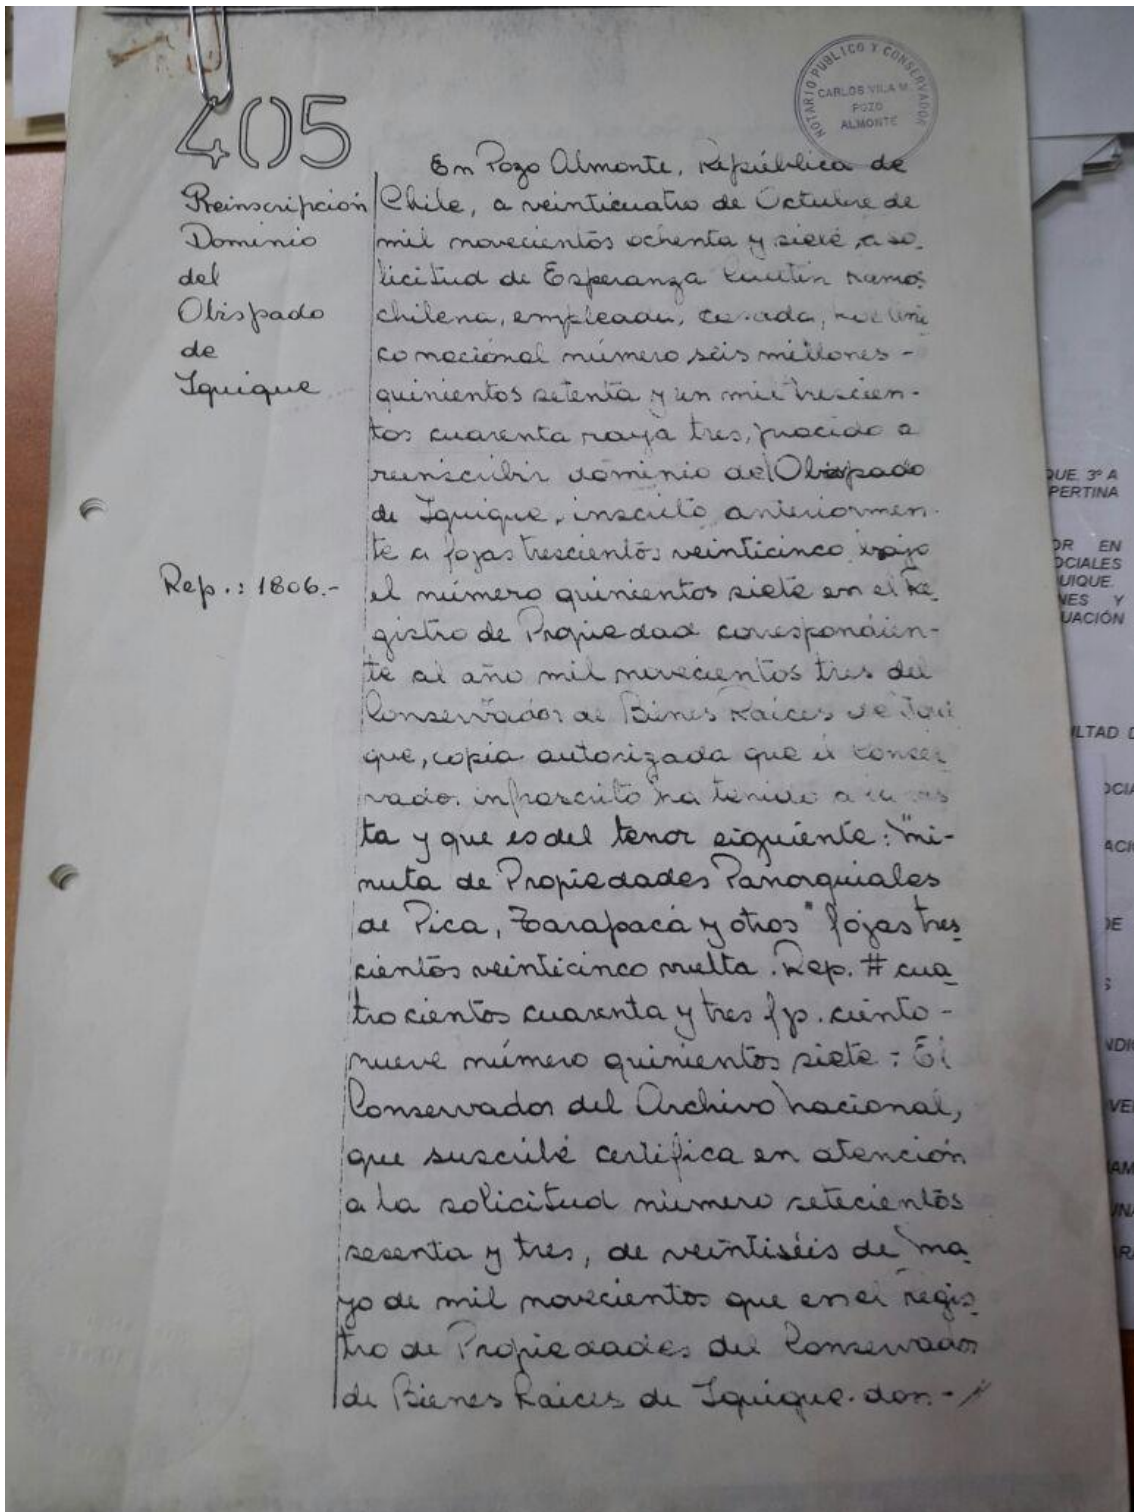 405
NOTARIO PUBLICO Y CONSERVADOR
CARLOS VILA M.
POZO
ALMONTE
Reinscripción
Dominio
del
Obispado
de
Iquique
Rep.: 1806.-
En Pozo Almonte, República de
Chile, a veinticuatro de Octubre de
mil novecientos ochenta y siete, a so
licitud de Esperanza Ramos
chilena, empleada, casada, rol úni
co nacional número seis millones -
quinientos setenta y un mil trescien-
tos cuarenta raya tres, procedo a
reinscribir dominio del Obispado
de Iquique, inscrito anteriormen-
te a fojas trescientos veinticinco bajo
el número quinientos siete en el Re
gistro de Propiedad correspondien-
te al año mil novecientos tres del
Conservador de Bienes Raíces de Iqui
que, copia autorizada que el conser
vador infrascrito ha tenido a la vis
ta y que es del tenor siguiente: "mi-
nuta de Propiedades Parroquiales
de Pica, Tarapacá y otros" fojas tres
cientos veinticinco vuelta. Rep. # cua
trocientos cuarenta y tres fp. ciento -
nueve número quinientos siete = El
Conservador del Archivo Nacional,
que suscribe certifica en atención
a la solicitud número setecientos
sesenta y tres, de veintiséis de ma
yo de mil novecientos que en el regis
tro de Propiedades del Conservador
de Bienes Raíces de Iquique. don-
QUE. 3º A
PERTINA
OR EN
OCIALES
UIQUE.
NES Y
UACIÓN
ULTAD D
OCIA
ACI
DE
S
NDI
VE
AM
UN
RA